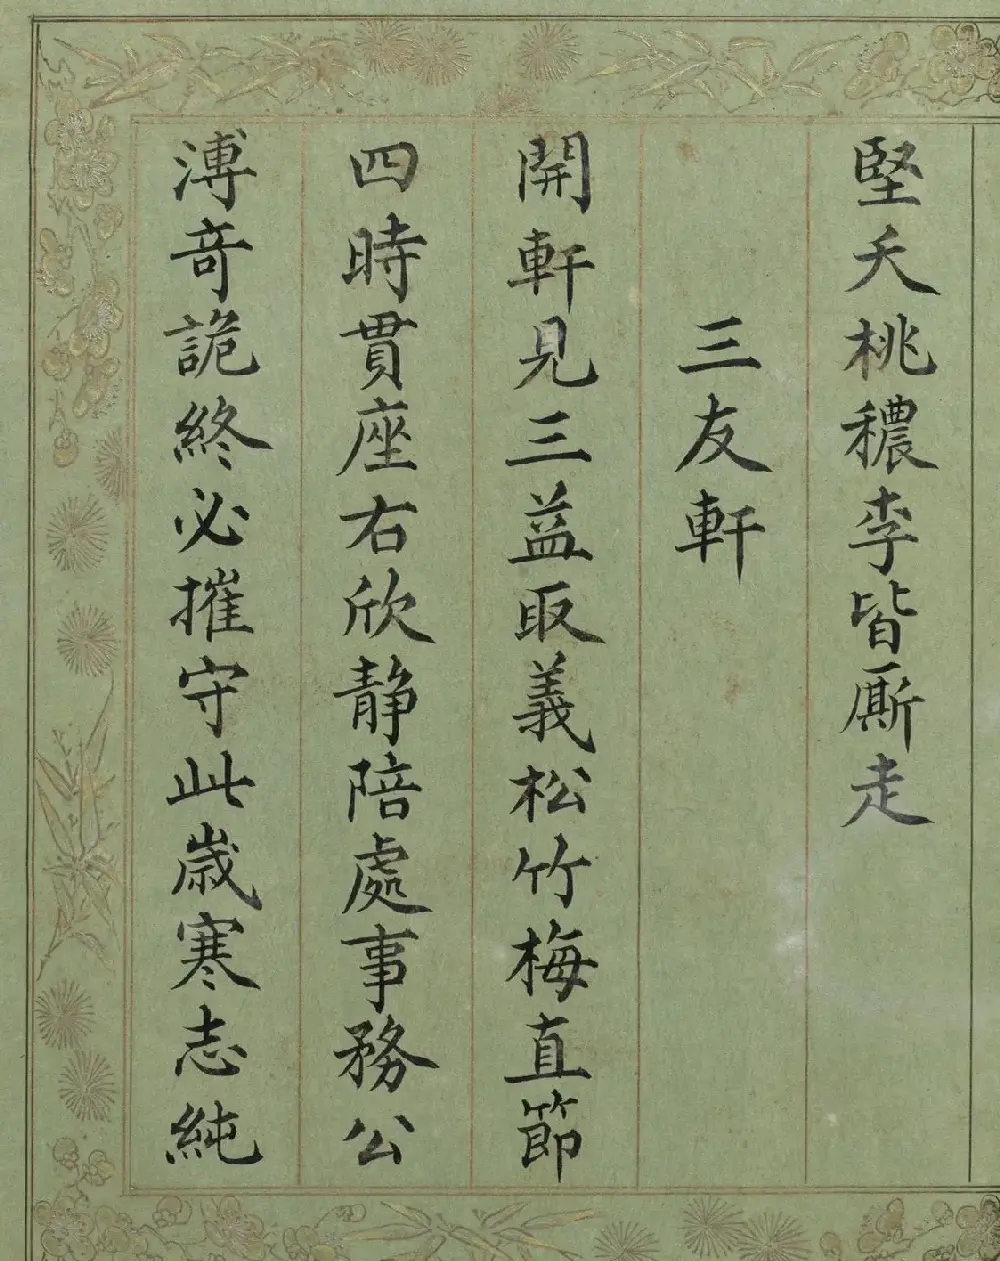 堅夭桃穠李皆厮走
三友軒
開軒見三益取義松竹梅直節
四時貫座右欣靜陪處事務公
溥奇詭終必摧守此歲寒志純